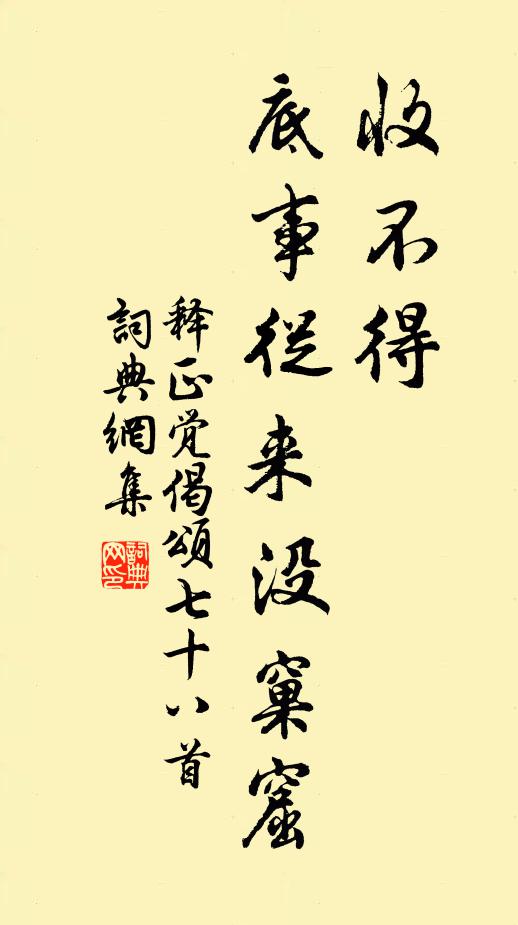 收不得
底事從来没窠窟
释正觉偈颂七十八首
詞典網集
詞典网印